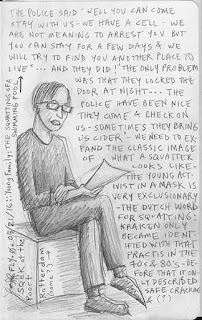 THE POLICE SAID "WELL YOU CAN COME
STAY WITH US - WE HAVE A CELL - WE
ARE NOT MEANING TO ARREST YOU BUT
YOU CAN STAY FOR A FEW DAYS & WE
WILL TRY TO FIND YOU ANOTHER PLACE TO
LIVE"... AND THEY DID! "THE ONLY PROBLEM
WAS THAT THEY LOCKED THE
DOOR AT NIGHT... THE
POLICE HAVE BEEN NICE
THEY COME & CHECK ON
US - SOMETIMES THEY BRING
US CIDER" - WE NEED TO EX-
PAND THE CLASSIC IMAGE
OF WHAT A SQUATTER
LOOKS LIKE
THE YOUNG ACT-
IVIST IN A MASK IS
VERY EXCLUSIONARY
- THE DUTCH WORD
FOR SQUATTING:
KRAKEN ONLY
BECAME IDENT-
IFIED WITH THAT
PRACTIS IN THE
70'S & 80'S - BE-
FORE THAT IT ON-
LY DESCRIBED
SAFE CRACKING
& (?)
THE SQUATTING OF A
SWIMMING POOL
SQEK at the
Poort